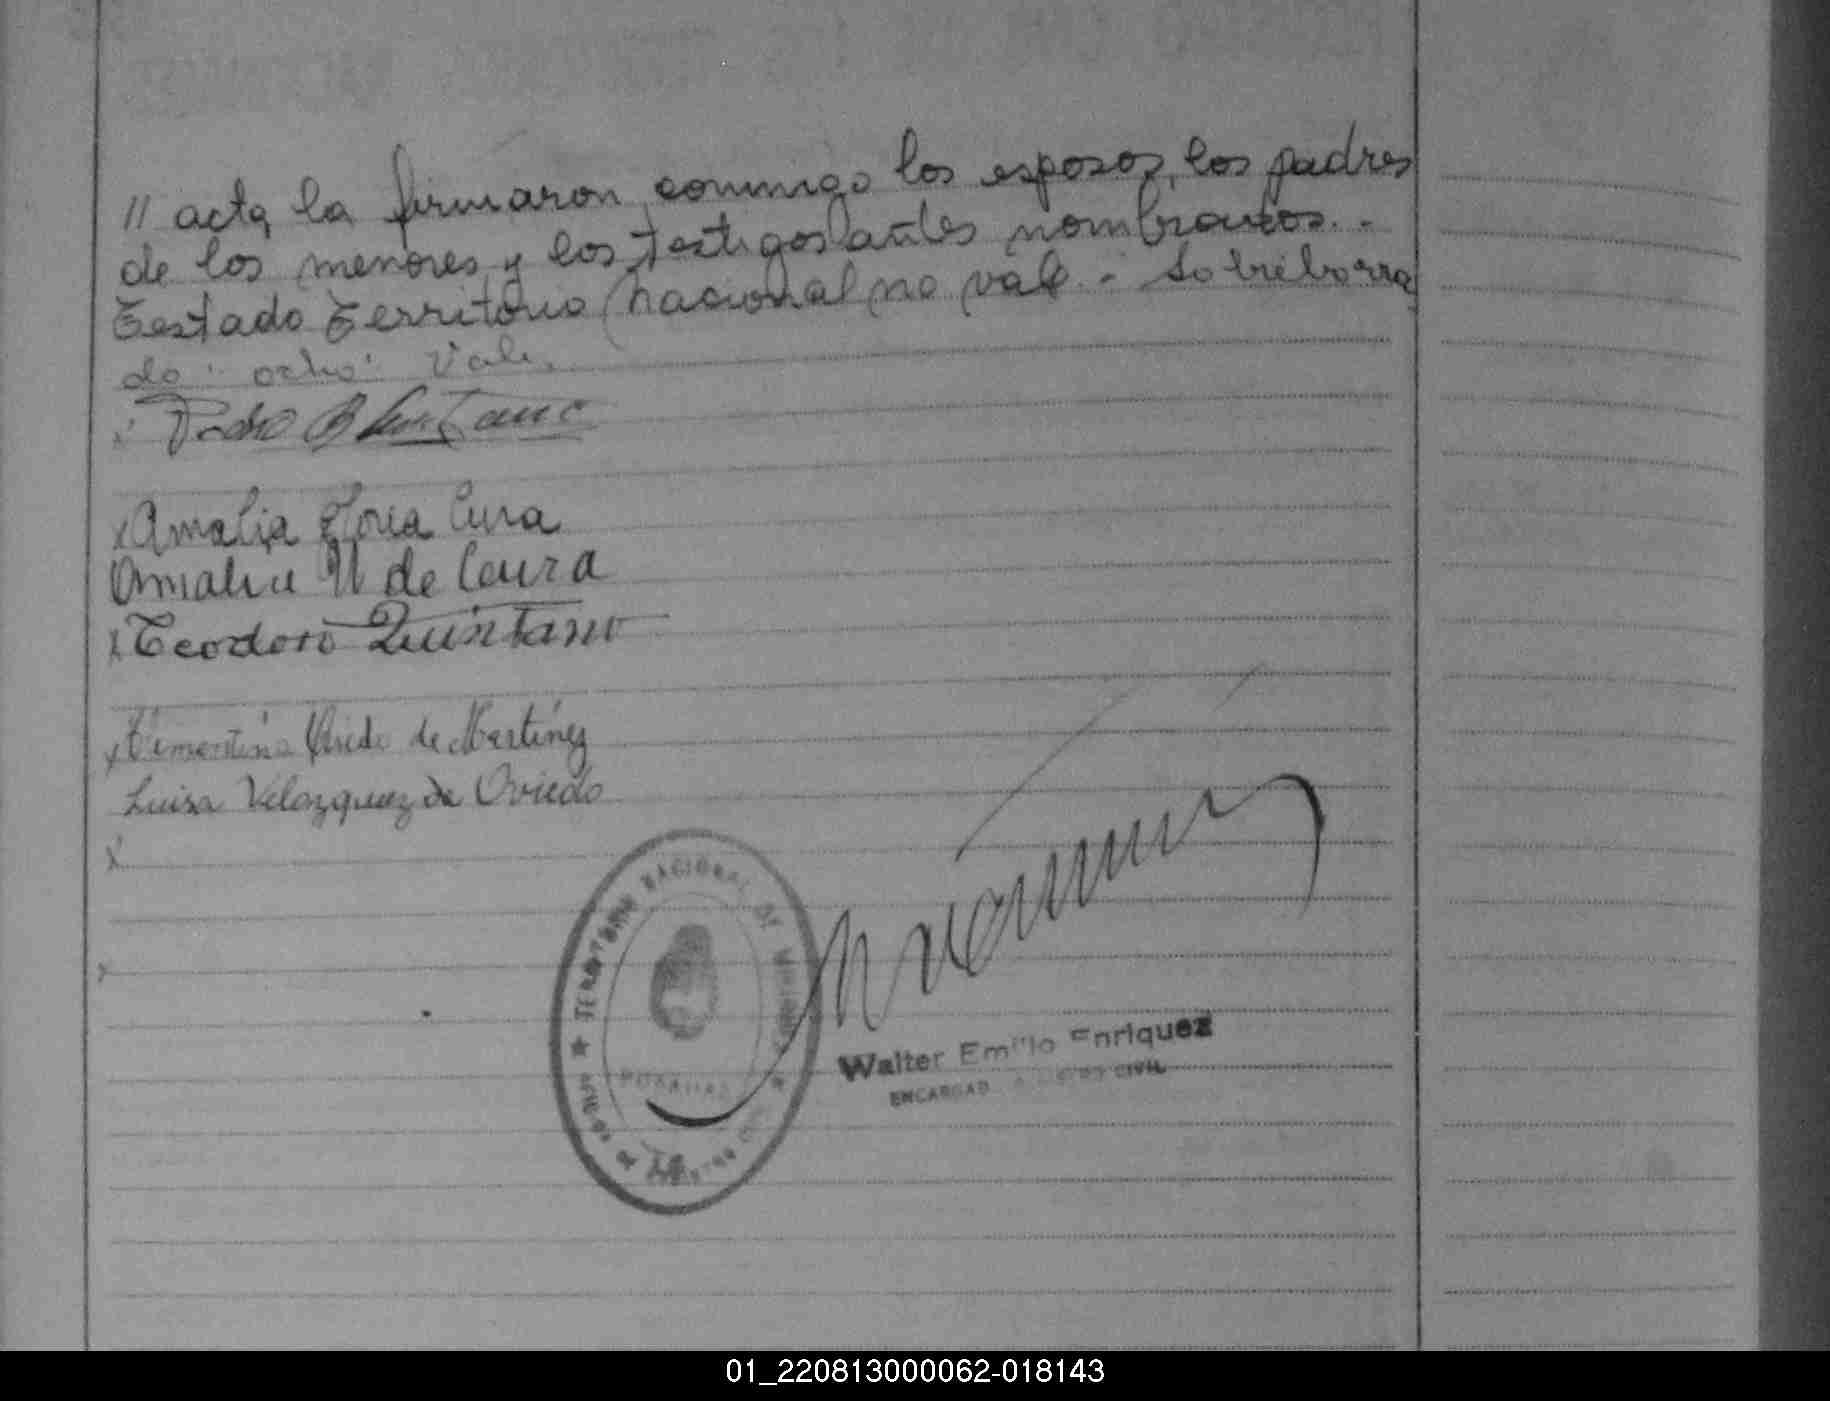 // acta, la firmaron conmigo los esposos, los padres
de los menores y los testigos antes nombrados. -
Testado Territorio Nacional no vale. - Sobreborra
do: ocho: Vale.
x Pedro B Quintana
x Amalia Cura
Amalia U de Cura
x Teodoro Quintano
x Oviedo de Martínez
Luisa Velazquez de Oviedo
x
TERRITORIO NACIONAL DE MISIONES
POSADAS
Walter Emilio Enriquez
ENCARGADO REGISTRO CIVIL
01_220813000062-018143